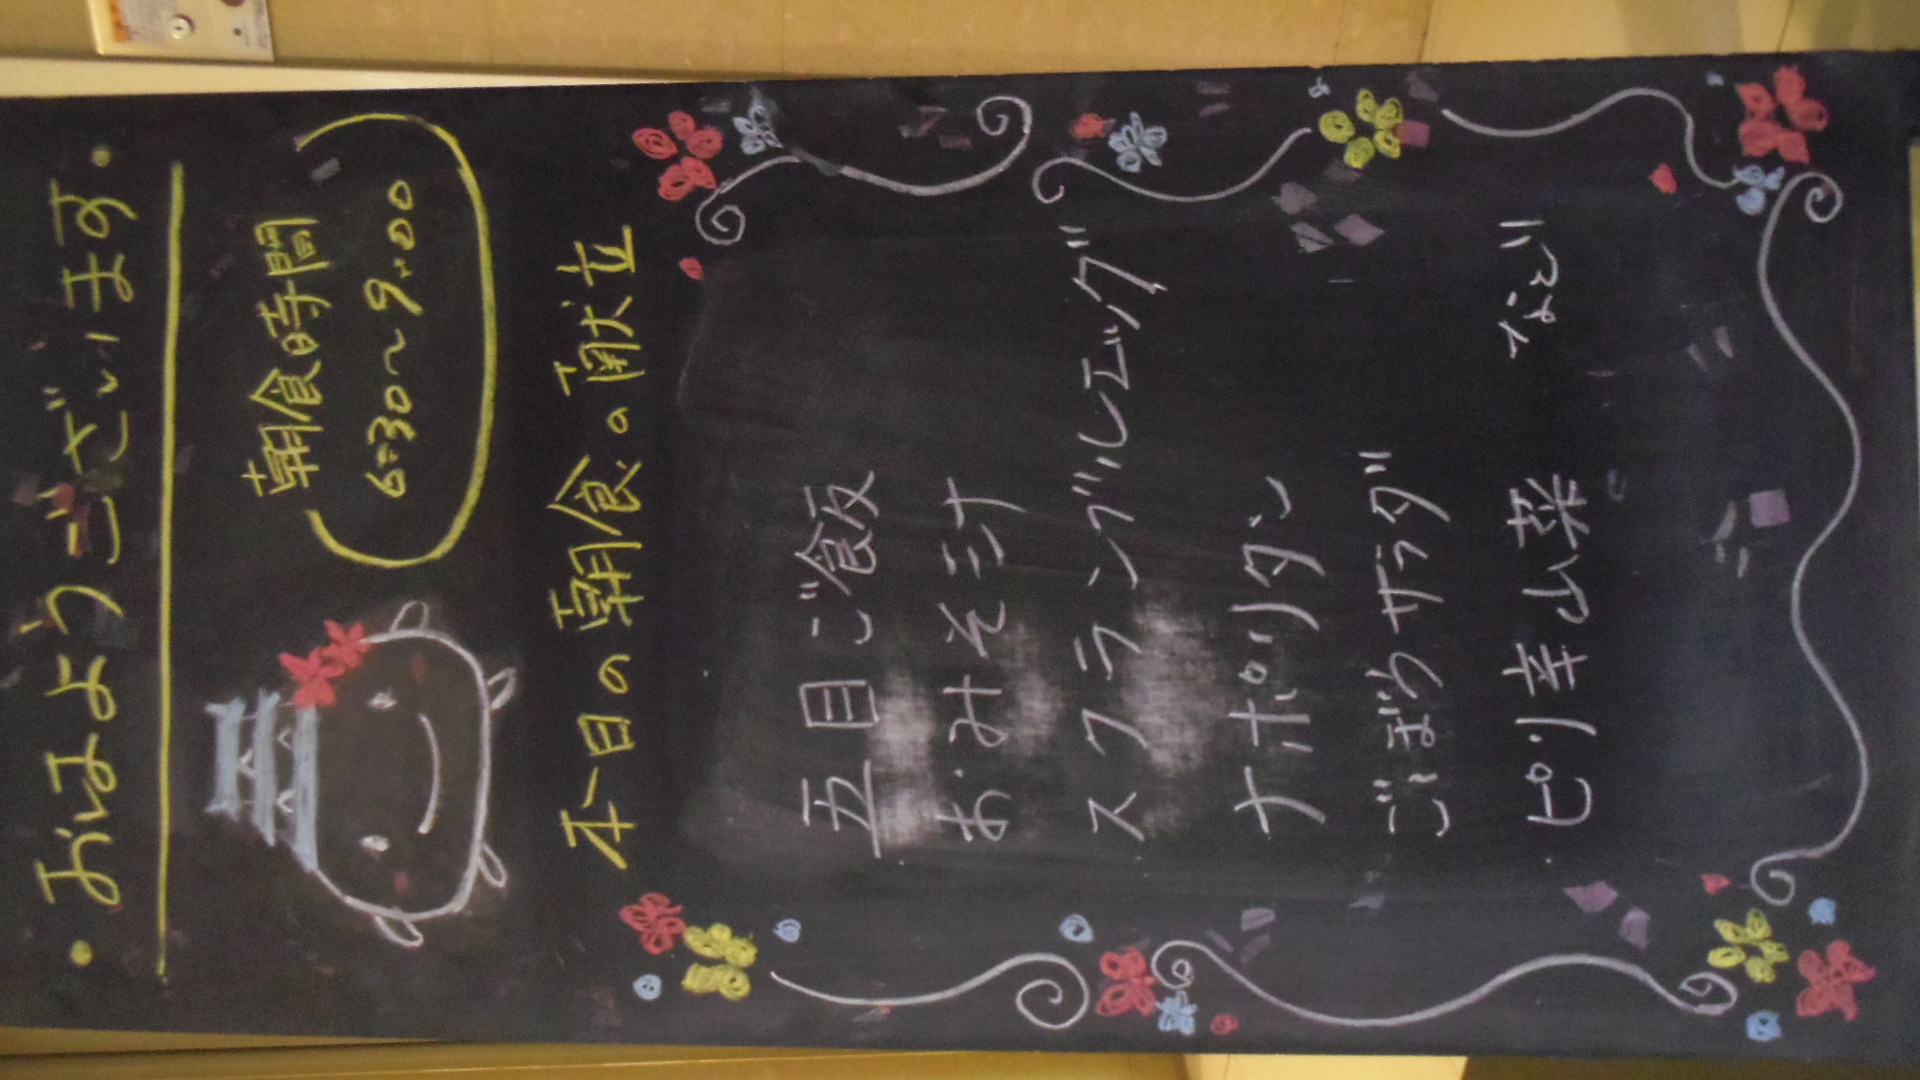 ・おはようございます・
朝食時間
6:30〜9:00
本日の朝食の献立
五目ご飯
おみそ汁
スクランブルエッグ
ナポリタン
ごぼうサラダ
ピリ辛山菜 など